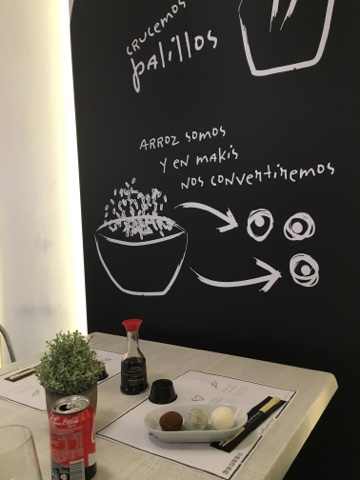 CRUCEMOS
palillos
ARROZ SOMOS
Y EN MAKIS
NOS CONVERTIREMOS
Coca-Cola